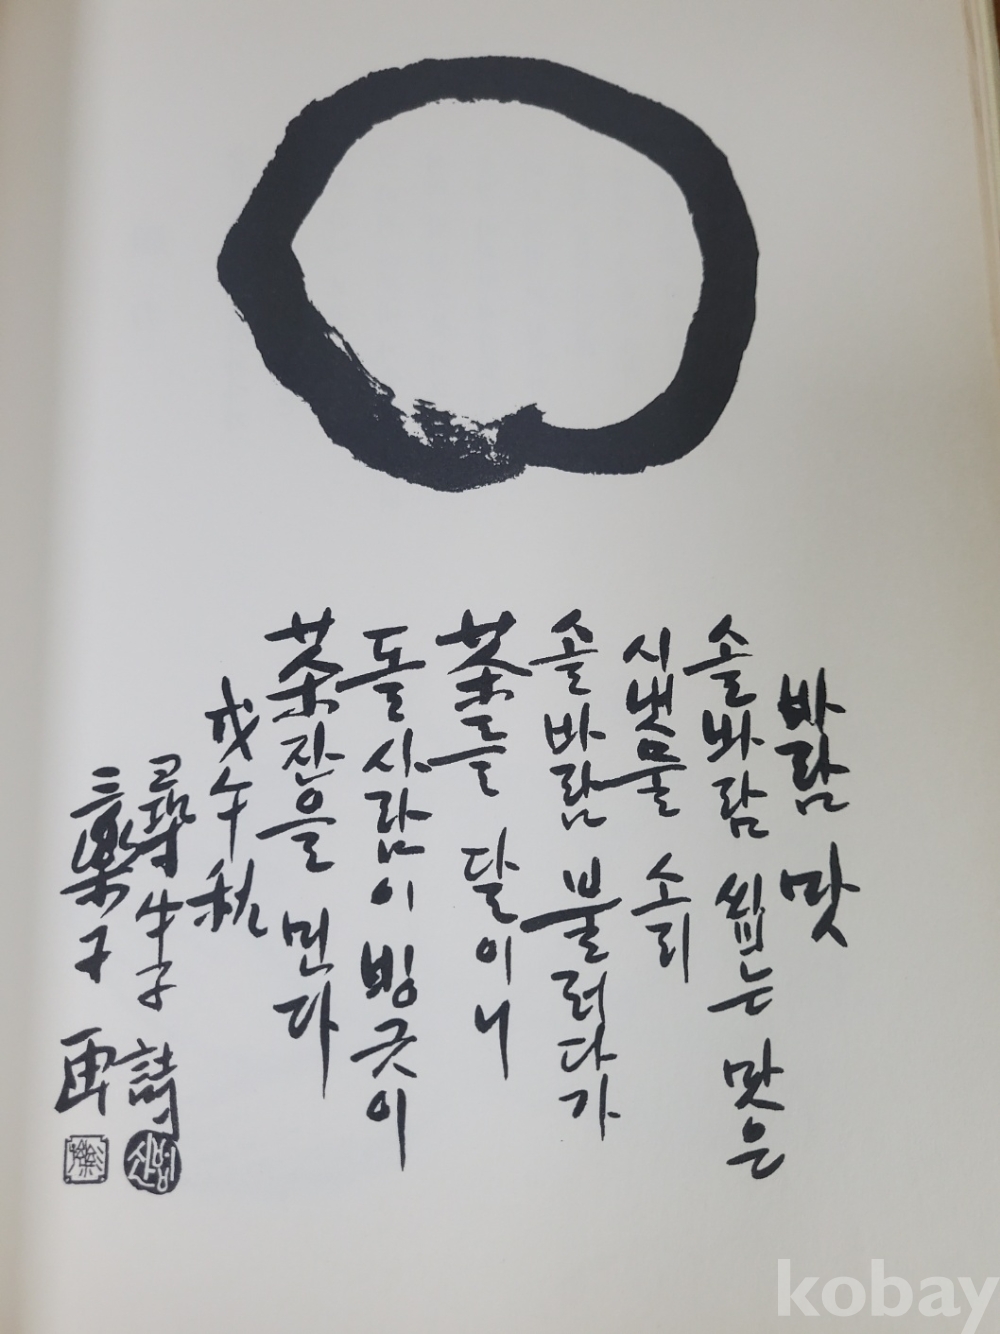 바람 맛
솔바람 씹는 맛은
시냇물 소리
솔바람 불러다가
茶를 달이니
돌사람이 빙긋이
茶잔을 민다
戊午秋
尋牛子 詩
三樂子 画
kobay